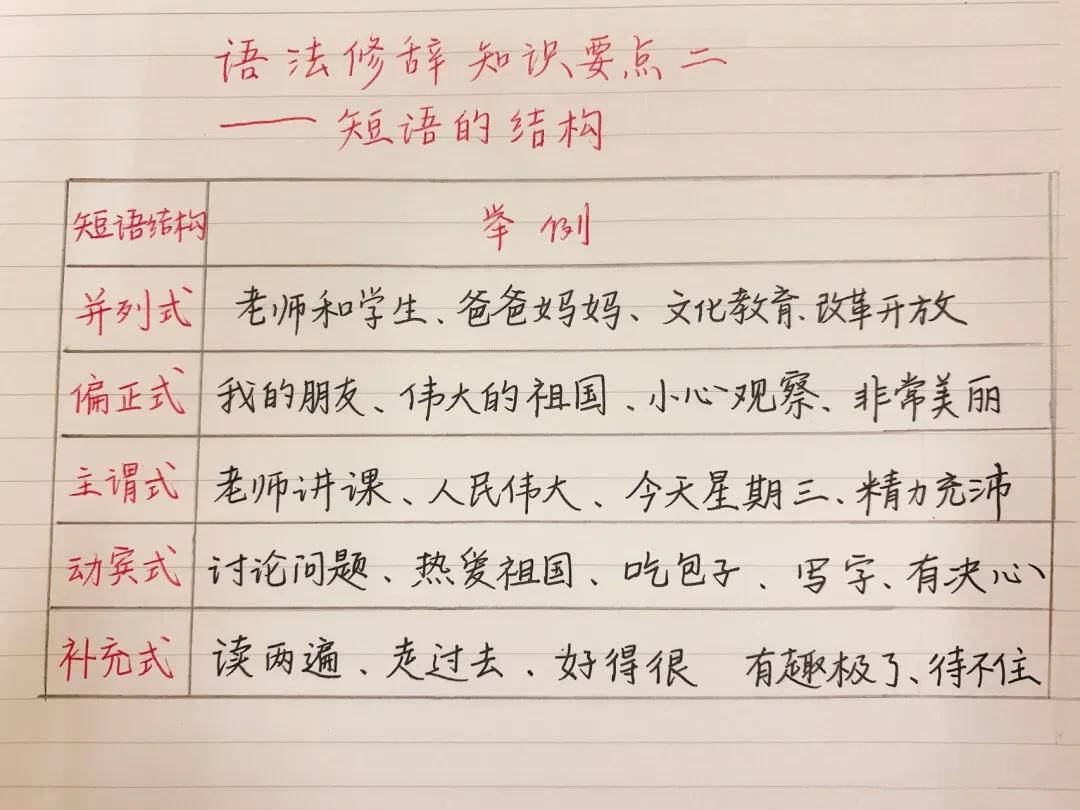 语法修辞知识要点二
——短语的结构
短语结构 举例
并列式 老师和学生、爸爸妈妈、文化教育、改革开放
偏正式 我的朋友、伟大的祖国、小心观察、非常美丽
主谓式 老师讲课、人民伟大、今天星期三、精力充沛
动宾式 讨论问题、热爱祖国、吃包子、写字、有决心
补充式 读两遍、走过去、好得很 有趣极了、待不住